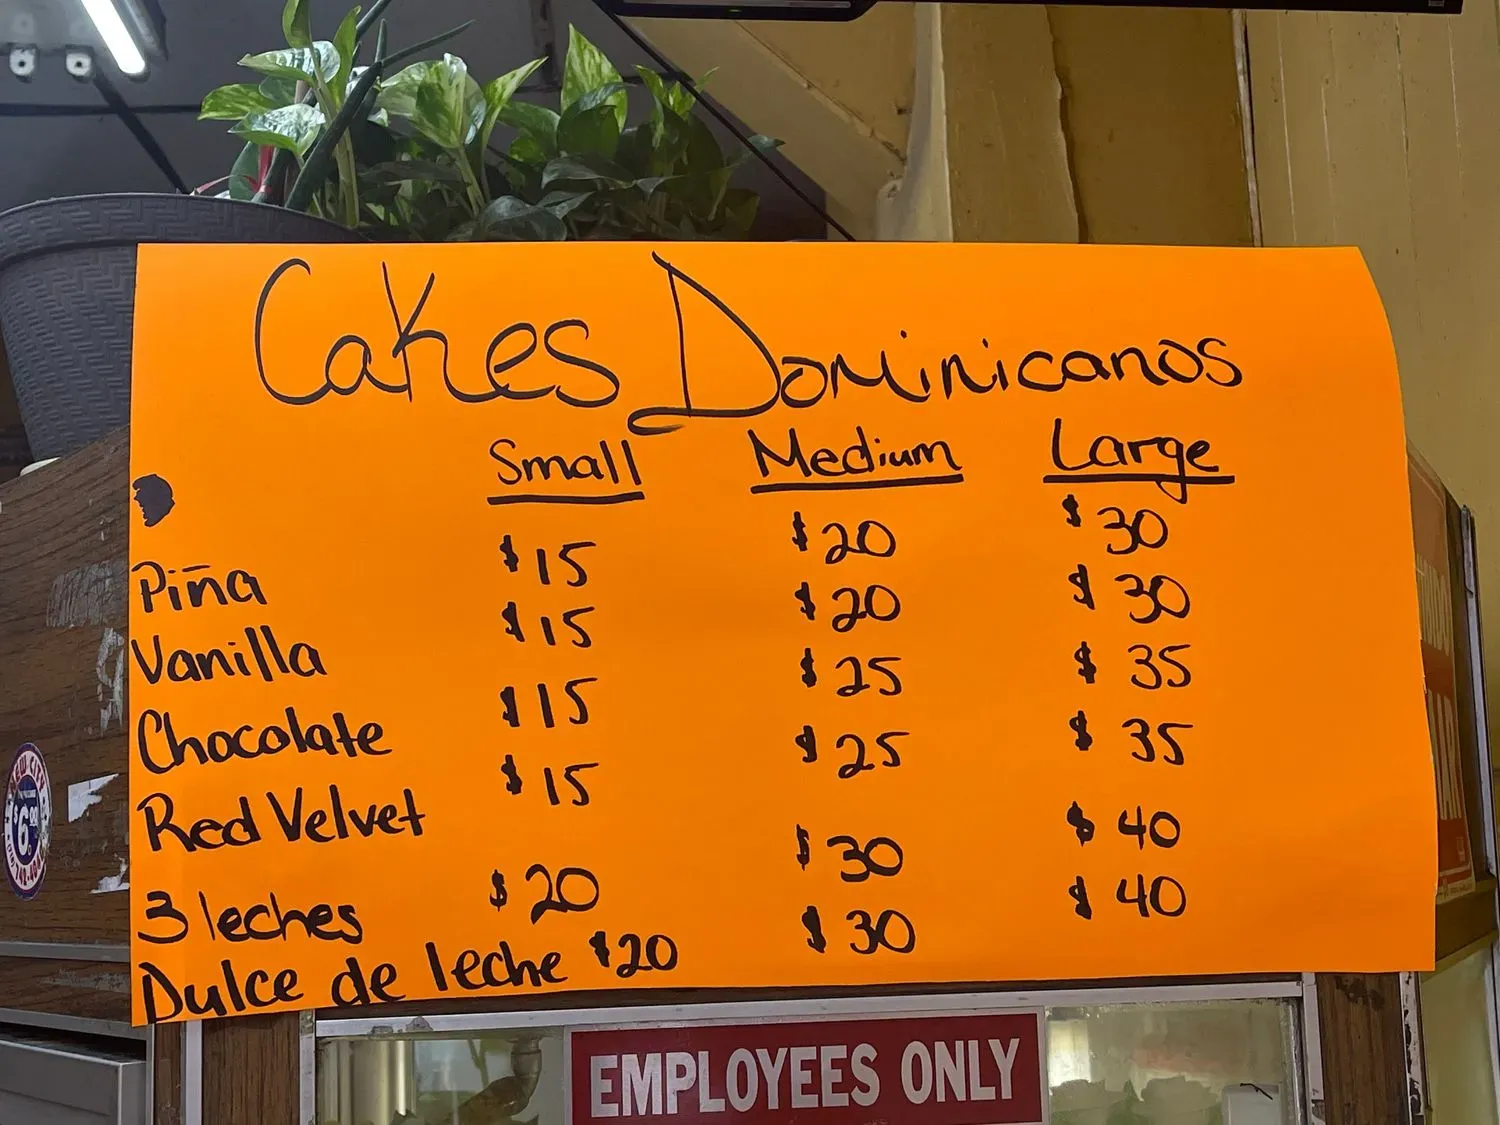 Cakes Dominicanos
Small Medium Large
Piña $15 $20 $30
Vanilla $15 $20 $30
Chocolate $15 $25 $35
Red Velvet $15 $25 $35
3 leches $20 $30 $40
Dulce de leche $20 $30 $40
EMPLOYEES ONLY